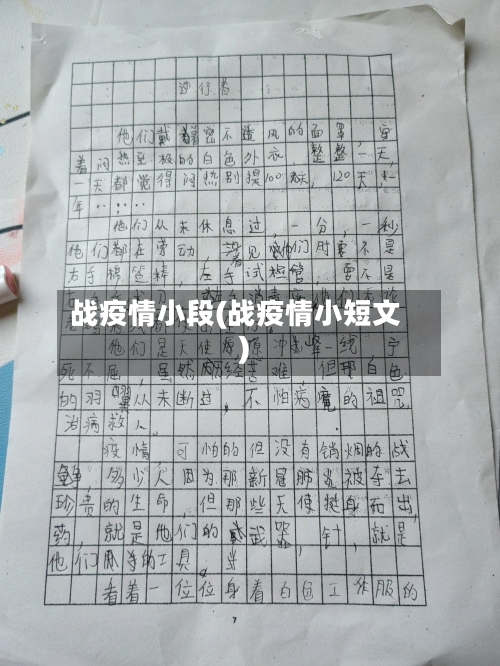 逆行者
他们戴着密不透风的面罩，穿
着闷热至极的白色外衣，整整一天，
一天都觉得闷热别提100天，120天，一
年……
他们从未休息过，一分，一秒
他们都在劳动，看见他们时要不是
右手棉签精，左手试管，要不是
战疫情小段(战疫情小短文
)
他们是天使 冲 一线 宁
死不屈，虽然历经苦难 但那白色
的羽翼从未断过，不怕病魔的诅咒，
治病救人。
疫情 可怕的但没有销烟的战
多少人因为那新冠肺炎被夺去
珍贵的生命，但那些天使挺身而出，
药，就是他们的武器，针，就是
他们 手的工具，
看着一位位身着白色工作服的
7